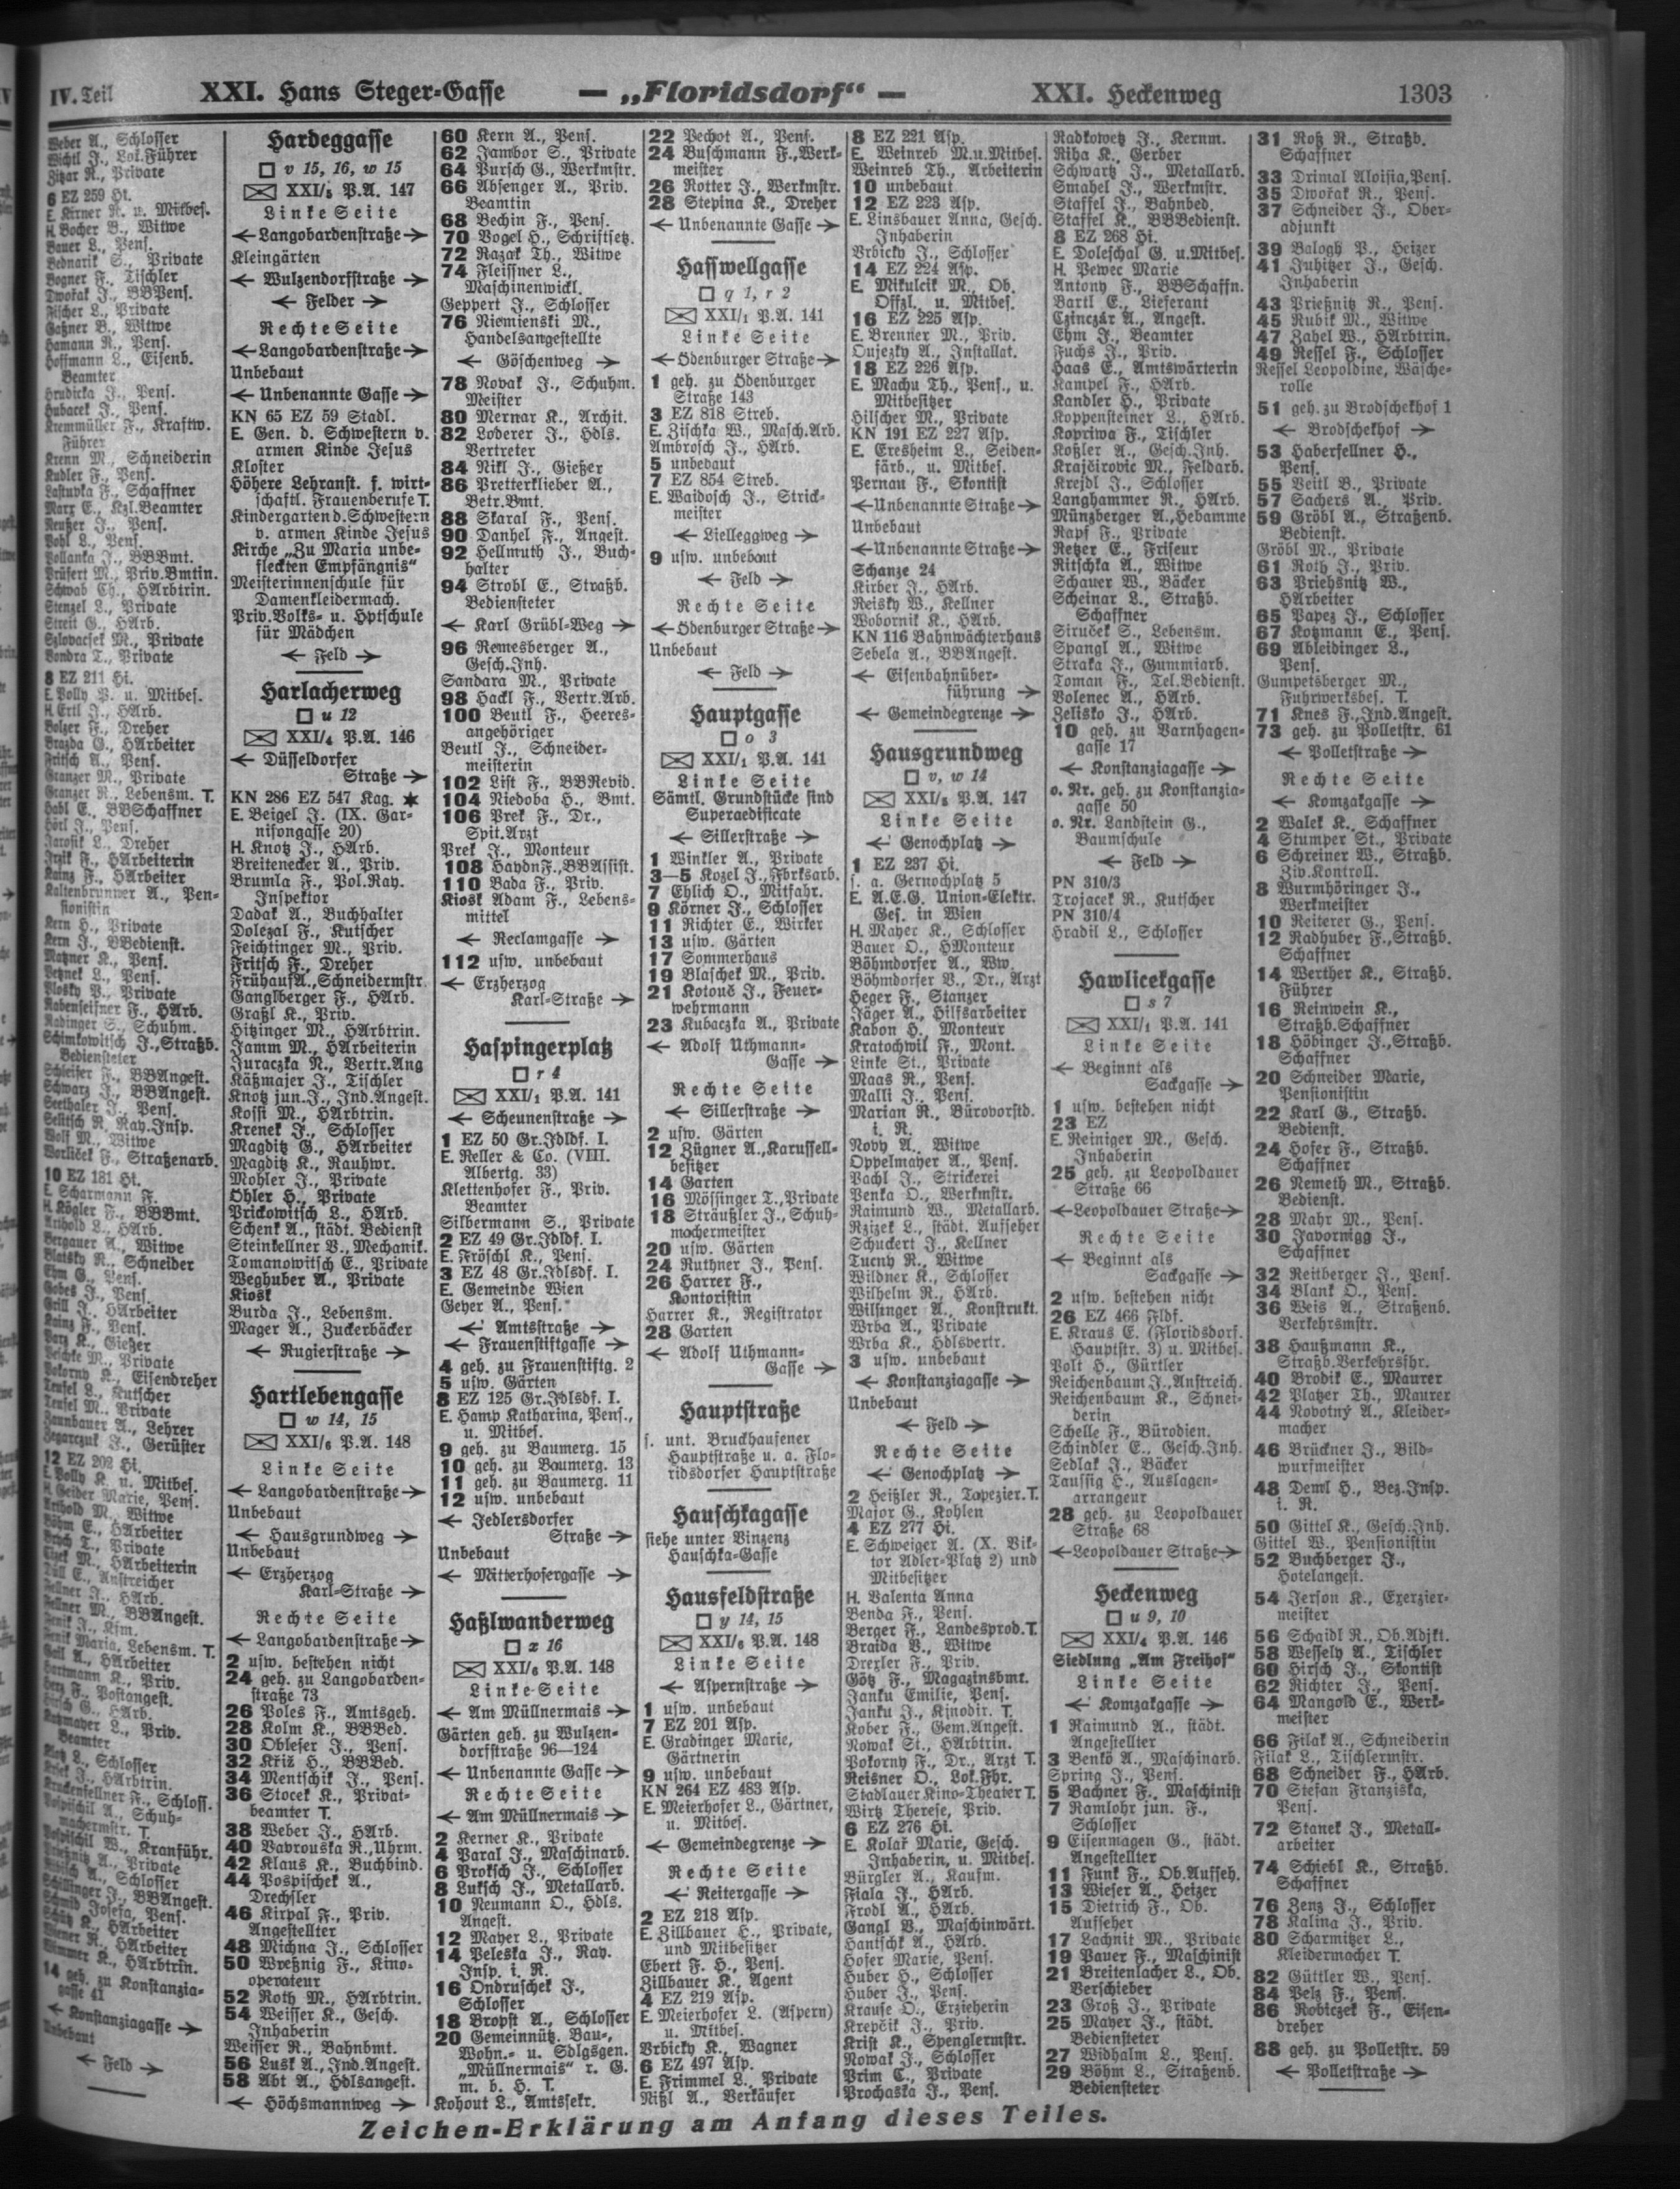 IV. Teil
XXI. Hans Steger-Gasse
— „Floridsdorf“ —
XXI. Heckenweg
1303
Weber A., Schlosser
Wichtl J., Lok.Führer
Zitar R., Private
6 EZ 259 Hi.
E. Kirner R. u. Mitbes.
H. Bocher B., Witwe
Bauer L., Pens.
Bednarik S., Private
Bogner F., Tischler
Dwořak J., BBPens.
Fischer L., Private
Gaßner B., Witwe
Hamann R., Pens.
Hoffmann L., Eisenb.
Beamter
Hrudicka J., Pens.
Hubacek J., Pens.
Kremmüller F., Kraftw.
Führer
Krenn M., Schneiderin
Kudler F., Pens.
Lastuvka F., Schaffner
Marx E., Kzl.Beamter
Neußer J., Pens.
Pohl L., Pens.
Pollanka J., BBBmt.
Prüfert M., Priv.Bmtin.
Schwab Ch., HArbtrin.
Stenzel L., Private
Streit G., HArb.
Szlovacsek M., Private
Vondra T., Private
8 EZ 211 Hi.
E. Polly P. u. Mitbes.
H. Ertl J., HArb.
Bolzer F., Dreher
Brazda G., HArbeiter
Fritsch A., Pens.
Granzer M., Private
Granzer R., Lebensm. T.
Habl E., BBSchaffner
Hörl J., Pens.
Jarosik L., Dreher
Jrzik F., HArbeiterin
Kainz F., HArbeiter
Kaltenbrunner A., Pen-
sionistin
Kern H., Private
Kern J., BBedienst.
Matzner K., Pens.
Petznek L., Pens.
Plosky P., Private
Rabenseifner F., HArb.
Rabinger S., Schuhm.
Schimkowitsch J., Straßb.
Bediensteter
Schleifer F., BBAngest.
Schwarz J., BBAngest.
Seethaler J., Pens.
Selitsch R., Ray.Insp.
Wolf M., Witwe
Worliček F., Straßenarb.
10 EZ 181 Hi.
E. Scharmann F.
H. Kögler F., BBBmt.
Arthold L., HArb.
Bergauer A., Witwe
Blatsky R., Schneider
Ehm G., Pens.
Gobes J., Pens.
Grill J., HArbeiter
Kainz F., Pens.
Parz K., Gießer
Peschke M., Private
Pokorny K., Eisendreher
Teufel L., Kutscher
Teufel M., Private
Zaunbauer A., Lehrer
Zegarczuk J., Gerüster
12 EZ 202 Hi.
E. Polly K. u. Mitbes.
H. Geider Marie, Pens.
Arthold M., Witwe
Böhm E., HArbeiter
Brych T., Private
Cizek M., HArbeiterin
Düll E., Anstreicher
Fellner J., HArb.
Fellner M., BBAngest.
Fenik J., Kfm.
Fenik Maria, Lebensm. T.
Gall A., HArbeiter
Hartmann K., Priv.
Herz F., Postangest.
Hirsch G., HArb.
Kutzmayer L., Priv.
Beamter
Klotz L., Schlosser
Kriek J., HArbtrin.
Kruckenfellner F., Schloss.
Pospischil A., Schuh-
machermstr. T.
Pospischil W., Kranführ.
Prießnitz A., Private
Ribisch A., Schlosser
Schillinger J., BBAngest.
Schmid Josefa, Pens.
Schütz K., HArbeiter
Wiener R., HArbeiter
Wimmer K., HArbtrin.
14 geh. zu Konstanzia-
gasse 41
← Konstanziagasse →
Unbebaut
← Feld →
Hardeggasse
□ v 15, 16, w 15
XXI/5 P.A. 147
Linke Seite
← Langobardenstraße →
Kleingärten
← Wulzendorfstraße →
← Felder →
Rechte Seite
← Langobardenstraße →
Unbebaut
← Unbenannte Gasse →
KN 65 EZ 59 Stadl.
E. Gen. d. Schwestern v.
armen Kinde Jesus
Kloster
Höhere Lehranst. f. wirt-
schaftl. Frauenberufe T.
Kindergarten d. Schwestern
v. armen Kinde Jesus
Kirche „Zu Maria unbe-
fleckten Empfängnis“
Meisterinnenschule für
Damenkleidermach.
Priv.Volks- u. Hptschule
für Mädchen
← Feld →
Harlacherweg
□ u 12
XXI/4 P.A. 146
← Düsseldorfer
Straße →
KN 286 EZ 547 Kag. ★
E. Beigel J. (IX. Gar-
nisongasse 20)
H. Knotz J., HArb.
Breitenecker A., Priv.
Brumla F., Pol.Ray.
Inspektor
Dadak A., Buchhalter
Dolezal F., Kutscher
Feichtinger M., Priv.
Fritsch F., Dreher
Frühauf A., Schneidermstr.
Ganglberger F., HArb.
Graßl K., Priv.
Hitzinger M., HArbtrin.
Jamm M., HArbeiterin
Juraczka R., Vertr.Ang
Käßmajer J., Tischler
Knotz jun. J., Ind.Angest.
Kossi M., HArbtrin.
Krenek J., Schlosser
Magditz G., HArbeiter
Magditz K., Rauhwr.
Mohler J., Private
Öhler H., Private
Prickowitsch L., HArb.
Schenk A., städt. Bedienst
Steinkellner V., Mechanik.
Tomanowitsch E., Private
Weghuber A., Private
Kiosk
Burda J., Lebensm.
Mager A., Zuckerbäcker
← Rugierstraße →
Hartlebengasse
□ w 14, 15
XXI/6 P.A. 148
Linke Seite
← Langobardenstraße →
Unbebaut
← Hausgrundweg →
Unbebaut
← Erzherzog
Karl-Straße →
Rechte Seite
← Langobardenstraße →
2 usw. bestehen nicht
24 geh. zu Langobarden-
straße 73
26 Poles F., Amtsgeh.
28 Kolm K., BBBed.
30 Obleser J., Pens.
32 Křiž H., BBBed.
34 Mentschik J., Pens.
36 Stocek K., Privat-
beamter T.
38 Weber J., HArb.
40 Vavrouska R., Uhrm.
42 Klaus K., Buchbind.
44 Pospischek A.,
Drechsler
46 Kirpal F., Priv.
Angestellter
48 Michna J., Schlosser
50 Wreßnig F., Kino-
operateur
52 Roth M., HArbtrin.
54 Weisser K., Gesch.
Inhaberin
Weisser R., Bahnbmt.
56 Lusk A., Ind.Angest.
58 Abt A., Hdlsangest.
← Höchsmannweg →
60 Kern A., Pens.
62 Jambor S., Private
64 Pursch G., Werkmstr.
66 Absenger A., Priv.
Beamtin
68 Bechin F., Pens.
70 Vogel H., Schriftsetz.
72 Razak Th., Witwe
74 Fleissner L.,
Maschinenwickl.
Geppert J., Schlosser
76 Niemienski M.,
Handelsangestellte
← Göschenweg →
78 Novak J., Schuhm.
Meister
80 Mernar K., Archit.
82 Loderer J., Hdls.
Vertreter
84 Nikl J., Gießer
86 Pretterklieber A.,
Betr.Bmt.
88 Skaral F., Pens.
90 Danhel F., Angest.
92 Hellmuth J., Buch-
halter
94 Strobl E., Straßb.
Bediensteter
← Karl Grübl-Weg →
96 Remesberger A.,
Gesch.Inh.
Sandara M., Private
98 Hackl F., Vertr.Arb.
100 Beutl F., Heeres-
angehöriger
Beutl J., Schneider-
meisterin
102 List F., BBRevid.
104 Niedoba H., Bmt.
106 Prek F., Dr.,
Spit.Arzt
Prek J., Monteur
108 Haydn F., BBAssist.
110 Bada F., Priv.
Kiosk Adam F., Lebens-
mittel
← Reclamgasse →
112 usw. unbebaut
← Erzherzog
Karl-Straße →
Haspingerplatz
□ r 4
XXI/1 P.A. 141
← Scheunenstraße →
1 EZ 50 Gr.Jdldf. I.
E. Reller & Co. (VIII.
Albertg. 33)
Klettenhofer F., Priv.
Beamter
Silbermann S., Private
2 EZ 49 Gr.Jdldf. I.
E. Fröschl K., Pens.
3 EZ 48 Gr.Jdlsdf. I.
E. Gemeinde Wien
Geyer A., Pens.
← Amtsstraße →
← Frauenstiftgasse →
4 geh. zu Frauenstiftg. 2
5 usw. Gärten
8 EZ 125 Gr.Jdlsdf. I.
E. Hamp Katharina, Pens.,
u. Mitbes.
9 geh. zu Baumerg. 15
10 geh. zu Baumerg. 13
11 geh. zu Baumerg. 11
12 usw. unbebaut
← Jedlersdorfer
Straße →
Unbebaut
← Mitterhofergasse →
Haßlwanderweg
□ z 16
XXI/6 P.A. 148
Linke Seite
← Am Müllnermais →
Gärten geh. zu Wulzen-
dorfstraße 96—124
← Unbenannte Gasse →
Rechte Seite
← Am Müllnermais →
2 Kerner K., Private
4 Paral J., Maschinarb.
6 Proksch J., Schlosser
8 Luksch J., Metallarb.
10 Neumann O., Hdls.
Angest.
12 Mayer L., Private
14 Peleska J., Ray.
Insp. i. R.
16 Ondruschek J.,
Schlosser
18 Bropst A., Schlosser
20 Gemeinnütz. Bau-,
Wohn.- u. Sdlgsgen.
„Müllnermais“ r. G.
m. b. H. T.
Kohout L., Amtssekr.
22 Pechot A., Pens.
24 Buschmann F., Werk-
meister
26 Rotter J., Werkmstr.
28 Stepina K., Dreher
← Unbenannte Gasse →
Hasswellgasse
□ q 1, r 2
XXI/1 P.A. 141
Linke Seite
← Ödenburger Straße →
1 geh. zu Ödenburger
Straße 143
3 EZ 818 Streb.
E. Zischka W., Masch.Arb.
Ambrosch J., HArb.
5 unbebaut
7 EZ 854 Streb.
E. Waidosch J., Strick-
meister
← Lielleggweg →
9 usw. unbebaut
← Feld →
Rechte Seite
← Ödenburger Straße →
Unbebaut
← Feld →
Hauptgasse
□ o 3
XXI/1 P.A. 141
Linke Seite
Sämtl. Grundstücke sind
Superaedificate
← Sillerstraße →
1 Winkler A., Private
3—5 Kozel J., Fbrksarb.
7 Ehlich O., Mitfahr.
9 Körner J., Schlosser
11 Richter E., Wirker
13 usw. Gärten
17 Sommerhaus
19 Blaschek M., Priv.
21 Kotouč J., Feuer-
wehrmann
23 Kubaczka A., Private
← Adolf Uthmann-
Gasse →
Rechte Seite
← Sillerstraße →
2 usw. Gärten
12 Zügner A., Karussell-
besitzer
14 Garten
16 Mössinger T., Private
18 Sträußler J., Schuh-
machermeister
20 usw. Gärten
24 Ruthner J., Pens.
26 Harrer F.,
Kontoristin
Harrer K., Registrator
28 Garten
← Adolf Uthmann-
Gasse →
Hauptstraße
s. unt. Bruckhaufener
Hauptstraße u. a. Flo-
ridsdorfer Hauptstraße
Hauschkagasse
siehe unter Vinzenz
Hauschka-Gasse
Hausfeldstraße
□ y 14, 15
XXI/6 P.A. 148
Linke Seite
← Aspernstraße →
1 usw. unbebaut
7 EZ 201 Asp.
E. Gradinger Marie,
Gärtnerin
9 usw. unbebaut
KN 264 EZ 483 Asp.
E. Meierhofer L., Gärtner,
u. Mitbes.
← Gemeindegrenze →
Rechte Seite
← Reitergasse →
2 EZ 218 Asp.
E. Zillbauer H., Private,
und Mitbesitzer
Ebert F. H., Pens.
Zillbauer K., Agent
4 EZ 219 Asp.
E. Meierhofer L. (Aspern)
u. Mitbes.
Vrbicky K., Wagner
6 EZ 497 Asp.
E. Frimmel L., Private
Nißl A., Verkäufer
8 EZ 221 Asp.
E. Weinreb M. u. Mitbes.
Weinreb Th., Arbeiterin
10 unbebaut
12 EZ 223 Asp.
E. Linsbauer Anna, Gesch.
Inhaberin
Vrbicky J., Schlosser
14 EZ 224 Asp.
E. Mikulcik M., Ob.
Offzl. u. Mitbes.
16 EZ 225 Asp.
E. Brenner M., Priv.
Oujezky A., Installat.
18 EZ 226 Asp.
E. Machu Th., Pens., u.
Mitbesitzer
Hilscher M., Private
KN 191 EZ 227 Asp.
E. Eresheim L., Seiden-
färb., u. Mitbes.
Pernau F., Skontist
← Unbenannte Straße →
Unbebaut
← Unbenannte Straße →
Schanze 24
Kirber J., HArb.
Reisky W., Kellner
Wobornik K., HArb.
KN 116 Bahnwächterhaus
Sebela A., BBAngest.
← Eisenbahnüber-
führung →
← Gemeindegrenze →
Hausgrundweg
□ v, w 14
XXI/5 P.A. 147
Linke Seite
← Genochplatz →
1 EZ 237 Hi.
s. a. Gernochplatz 5
E. A.E.G. Union-Elektr.
Ges. in Wien
H. Mayer K., Schlosser
Bauer O., HMonteur
Böhmdorfer A., Ww.
Böhmdorfer V., Dr., Arzt
Heger F., Stanzer
Jäger A., Hilfsarbeiter
Kabon H., Monteur
Kratochwil F., Mont.
Linke St., Private
Maas R., Pens.
Malli J., Pens.
Marian R., Bürovorstd.
i. R.
Novy A., Witwe
Oppelmayer A., Pens.
Pachl J., Strickerei
Penka O., Werkmstr.
Raimund W., Metallarb.
Rziezek L., städt. Aufseher
Schuckert J., Kellner
Tueny R., Witwe
Wildner K., Schlosser
Wilhelm R., HArb.
Wilfinger A., Konstrukt.
Wrba A., Private
Wrba K., Hdlsvertr.
3 usw. unbebaut
← Konstanziagasse →
Unbebaut
← Feld →
Rechte Seite
← Genochplatz →
2 Heißler R., Tapezier. T.
Major G., Kohlen
4 EZ 277 Hi.
E. Schweiger A. (X. Vik-
tor Adler-Platz 2) und
Mitbesitzer
H. Valenta Anna
Benda F., Pens.
Berger F., Landesprod. T.
Braida V., Witwe
Drexler F., Priv.
Götz F., Magazinsbmt.
Janku Emilie, Pens.
Janku J., Kinodir. T.
Kober F., Gem.Angest.
Nowak St., HArbtrin.
Pokorny F., Dr., Arzt T.
Reisner O., Lok.Fhr.
Stadlauer Kino-Theater T.
Wirtz Therese, Priv.
6 EZ 276 Hi.
E. Kolař Marie, Gesch.
Inhaberin, u. Mitbes.
Bürgler A., Kaufm.
Fiala J., HArb.
Frodl A., HArb.
Gangl B., Maschinwärt.
Hantschk A., HArb.
Hofer Marie, Pens.
Huber H., Schlosser
Huber J., Pens.
Krause O., Erzieherin
Krepčik J., Priv.
Krist K., Spenglermstr.
Nowak J., Schlosser
Prim C., Private
Prochaska J., Pens.
Radkowetz J., Kernm.
Riha K., Gerber
Schwartz J., Metallarb.
Smahel J., Werkmstr.
Staffel J., Bahnbed.
Staffel K., BBBedienst.
8 EZ 268 Hi.
E. Doleschal G. u. Mitbes.
H. Pewec Marie
Antony F., BBSchaffn.
Bartl E., Lieferant
Czinczár A., Angest.
Ehm J., Beamter
Fuchs J., Priv.
Haas E., Amtswärterin
Kampel F., HArb.
Kandler H., Private
Koppensteiner L., HArb.
Kopriwa F., Tischler
Koßler A., Gesch.Inh.
Krajčirovic M., Feldarb.
Krejdl J., Schlosser
Langhammer R., HArb.
Münzberger A., Hebamme
Rapf F., Private
Retzer E., Friseur
Ritschka A., Witwe
Schauer W., Bäcker
Scheinar L., Straßb.
Schaffner
Siruček S., Lebensm.
Spangl A., Witwe
Straka J., Gummiarb.
Toman F., Tel.Bedienst.
Volenec A., HArb.
Zelisko J., HArb.
10 geh. zu Varnhagen-
gasse 17
← Konstanziagasse →
o. Nr. geh. zu Konstanzia-
gasse 50
o. Nr. Landstein G.,
Baumschule
← Feld →
PN 310/3
Trojacek R., Kutscher
PN 310/4
Hradil L., Schlosser
Hawlicekgasse
□ s 7
XXI/1 P.A. 141
Linke Seite
← Beginnt als
Sackgasse →
1 usw. bestehen nicht
23 EZ
E. Reiniger M., Gesch.
Inhaberin
25 geh. zu Leopoldauer
Straße 66
← Leopoldauer Straße →
Rechte Seite
← Beginnt als
Sackgasse →
2 usw. bestehen nicht
26 EZ 466 Fldf.
E. Kraus E. (Floridsdorf.
Hauptstr. 3) u. Mitbes.
Polt H., Gürtler
Reichenbaum J., Anstreich.
Reichenbaum K., Schnei-
derin
Schelle F., Bürodien.
Schindler E., Gesch.Inh.
Sedlak J., Bäcker
Taussig H., Auslagen-
arrangeur
28 geh. zu Leopoldauer
Straße 68
← Leopoldauer Straße →
Heckenweg
□ u 9, 10
XXI/4 P.A. 146
Siedlung „Am Freihof“
Linke Seite
← Komzakgasse →
1 Raimund A., städt.
Angestellter
3 Benkö A., Maschinarb.
Spring J., Pens.
5 Bachner F., Maschinist
7 Ramlohr jun. F.,
Schlosser
9 Eisenmagen G., städt.
Angestellter
11 Funk F., Ob.Aufseh.
13 Wieser A., Heizer
15 Dietrich F., Ob.
Aufseher
17 Lachnit M., Private
19 Pauer F., Maschinist
21 Breitenlacher L., Ob.
Verschieber
23 Groß J., Private
25 Mayer J., städt.
Bediensteter
27 Widhalm L., Pens.
29 Böhm L., Straßenb.
Bediensteter
31 Roß R., Straßb.
Schaffner
33 Drimal Aloisia, Pens.
35 Dwořak R., Pens.
37 Schneider J., Ober-
adjunkt
39 Balogh P., Heizer
41 Juhitzer J., Gesch.
Inhaberin
43 Prießnitz R., Pens.
45 Rubik M., Witwe
47 Zahel W., HArbtrin.
49 Ressel F., Schlosser
Ressel Leopoldine, Wäsche-
rolle
51 geh. zu Brodschekhof 1
← Brodschekhof →
53 Haberfellner H.,
Pens.
55 Veitl B., Private
57 Sachers A., Priv.
59 Gröbl A., Straßenb.
Bedienst.
Gröbl M., Private
61 Roth J., Priv.
63 Priehsnitz W.,
HArbeiter
65 Papez J., Schlosser
67 Kotzmann E., Pens.
69 Ableidinger L.,
Pens.
Gumpetsberger M.,
Fuhrwerksbes. T.
71 Knes F., Ind.Angest.
73 geh. zu Polletstr. 61
← Polletstraße →
Rechte Seite
← Komzakgasse →
2 Walek K., Schaffner
4 Stumper St., Private
6 Schreiner W., Straßb.
Ziv.Kontroll.
8 Wurmhöringer J.,
Werkmeister
10 Reiterer G., Pens.
12 Radhuber F., Straßb.
Schaffner
14 Werther K., Straßb.
Führer
16 Reinwein K.,
Straßb.Schaffner
18 Höbinger J., Straßb.
Schaffner
20 Schneider Marie,
Pensionistin
22 Karl G., Straßb.
Bedienst.
24 Hofer F., Straßb.
Schaffner
26 Nemeth M., Straßb.
Bedienst.
28 Mahr M., Pens.
30 Javornigg J.,
Schaffner
32 Reitberger J., Pens.
34 Blank O., Pens.
36 Weis A., Straßenb.
Verkehrsmstr.
38 Haußmann K.,
Straßb.Verkehrsfhr.
40 Brodik E., Maurer
42 Platzer Th., Maurer
44 Novotny A., Kleider-
macher
46 Brückner J., Bild-
wurfmeister
48 Deml H., Bez.Insp.
i. R.
50 Gittel K., Gesch.Inh.
Gittel W., Pensionistin
52 Buchberger J.,
Hotelangest.
54 Jerson K., Exerzier-
meister
56 Schaidl R., Ob.Adjkt.
58 Wessely A., Tischler
60 Hirsch J., Skontist
62 Richter J., Pens.
64 Mangold E., Werk-
meister
66 Filak A., Schneiderin
Filak L., Tischlermstr.
68 Schneider F., HArb.
70 Stefan Franziska,
Pens.
72 Stanek J., Metall-
arbeiter
74 Schiebl K., Straßb.
Schaffner
76 Zenz J., Schlosser
78 Kalina J., Priv.
80 Scharmitzer L.,
Kleidermacher T.
82 Güttler W., Pens.
84 Pelz F., Pens.
86 Robiczek F., Eisen-
dreher
88 geh. zu Polletstr. 59
← Polletstraße →
Zeichen-Erklärung am Anfang dieses Teiles.